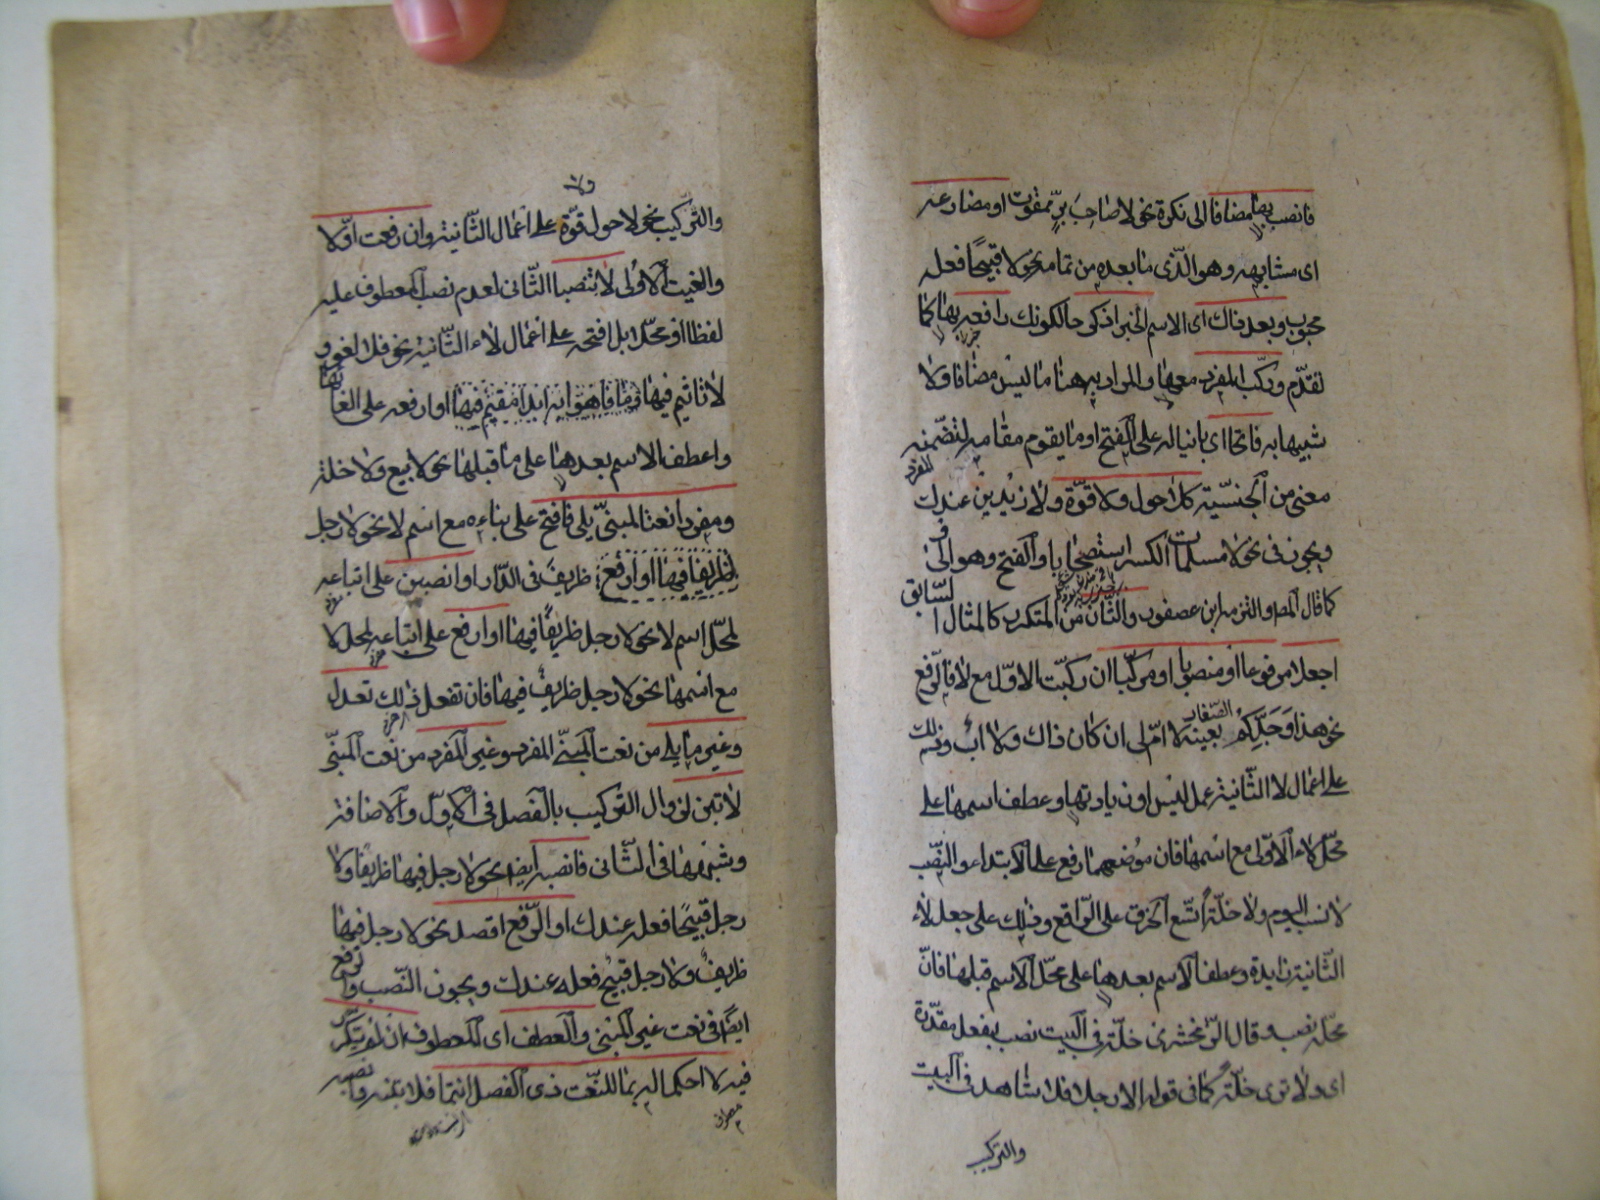 فانصب بها مضافا الى نكرة نحو لا صاحب برّ ممقوت او مضارعه
اى مشابهه وهو الّذى ما بعده من تمامه نحو لا قبيحًا فعله
محبوب وبعد ذاك اى الاسم الخبر اذكر حالكونك رافعه بها كما
تقدّم وركّب المفرد معها والمراد به هنا ما ليس مضافا ولا
شبيها به فاتحا اى بانيا له على الفتح او ما يقوم مقامه لتضمّنه
معنى من الجنسيّة كلا حول ولا قوّة ولا زيدين عندك
ويجوز فى نحو لا مسلمات الكسر استصحابا والفتح وهو اولى
كما قال المصـ والتزمه ابن عصفور والثّان من المتكرر كالمثال السّابق
اجعلا مرفوعا او منصوبا او مركّبا ان ركّبت الاوّل مع لا فالرّفع
نحو هذا وَجَدِّكُمْ الصّغار بعينه لا امّ لى ان كان ذاك ولا اب وذلك
على اعمال لا الثّانية عمل ليس او زيادتها وعطف اسمها على
محلّ لاء الاولى مع اسمها فان موضعهما رفع على الابتداء والنّصب
لا نسب اليوم ولا خلّة اتّسع الخرق على الرّاقع وذلك على جعل لاء
الثّانية زايدة وعطف الاسم بعدها على محلّ الاسم قبلها فانّ
محلّه نصب وقال الزّمخشرى خلّة فى البيت نصب بفعل مقدّرة
اى ولا ترى خلّة كما فى قوله الا رجلا فلا شاهد فى البيت
والتركيب
والتّركيب نحو لا حول ولا قوّة على اعمال الثّانية وان رفعت اوّلا
والغيت الاولى لا تنصبا الثّانى لعدم نصب المعطوف عليه
لفظا او محلّا بل افتحه على اعمال لاء الثّانية نحو فلا لغو و
لا تاثيم فيها وما فاهوا به ابدا مقيم فيها او ارفعه على الغائها
واعطف الاسم بعدها على ما قبلها نحو لا بيع ولا خلة
ومفردا نعتا لمبنىّ يلى فافتح على بناءه مع اسم لا نحو لا رجل
ظريف فيها او ارفع ظريف فى الدّار او انصبن على اتباعه
لمحلّ اسم لا نحو لا رجل ظريفًا فيها او ارفع على اتباعه لمحل لا
مع اسمها نحو لا رجل ظريفٌ فيها فان تفعل ذلك تعدل
وغير ما يلى من نعت المبنىّ المفرد وغير المفرد من نعت المبنىّ
لا تبن لزوال التّركيب بالفصل فى الاوّل والاضافة
وشبهها فى الثّانى فانصبه ايضا نحو لا رجل فيها ظريفًا ولا
رجل قبيحًا فعله عندك او الرّفع اقصد نحو لا رجل فيها
ظريفٌ ولا رجل قبيحٌ فعله عندك ويجوز النّصب والرفع
ايضًا فى نعت غير المبنى والعطف اى المعطوف ان لم تتكرّر
فيه لا احكما له بما للنّعت ذى الفصل انتما فلا تبنه وانصبه